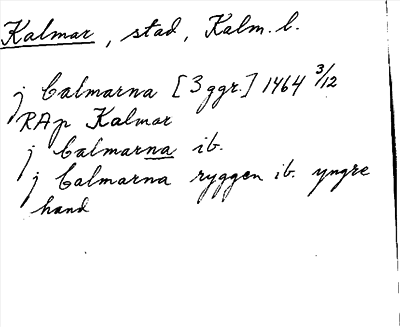 Kalmar, stad, Kalm. l.
j Calmarna [3 ggr.] 1464 3/12
RAp Kalmar
j Calmarna ib.
j Calmarna ryggen ib. yngre
hand